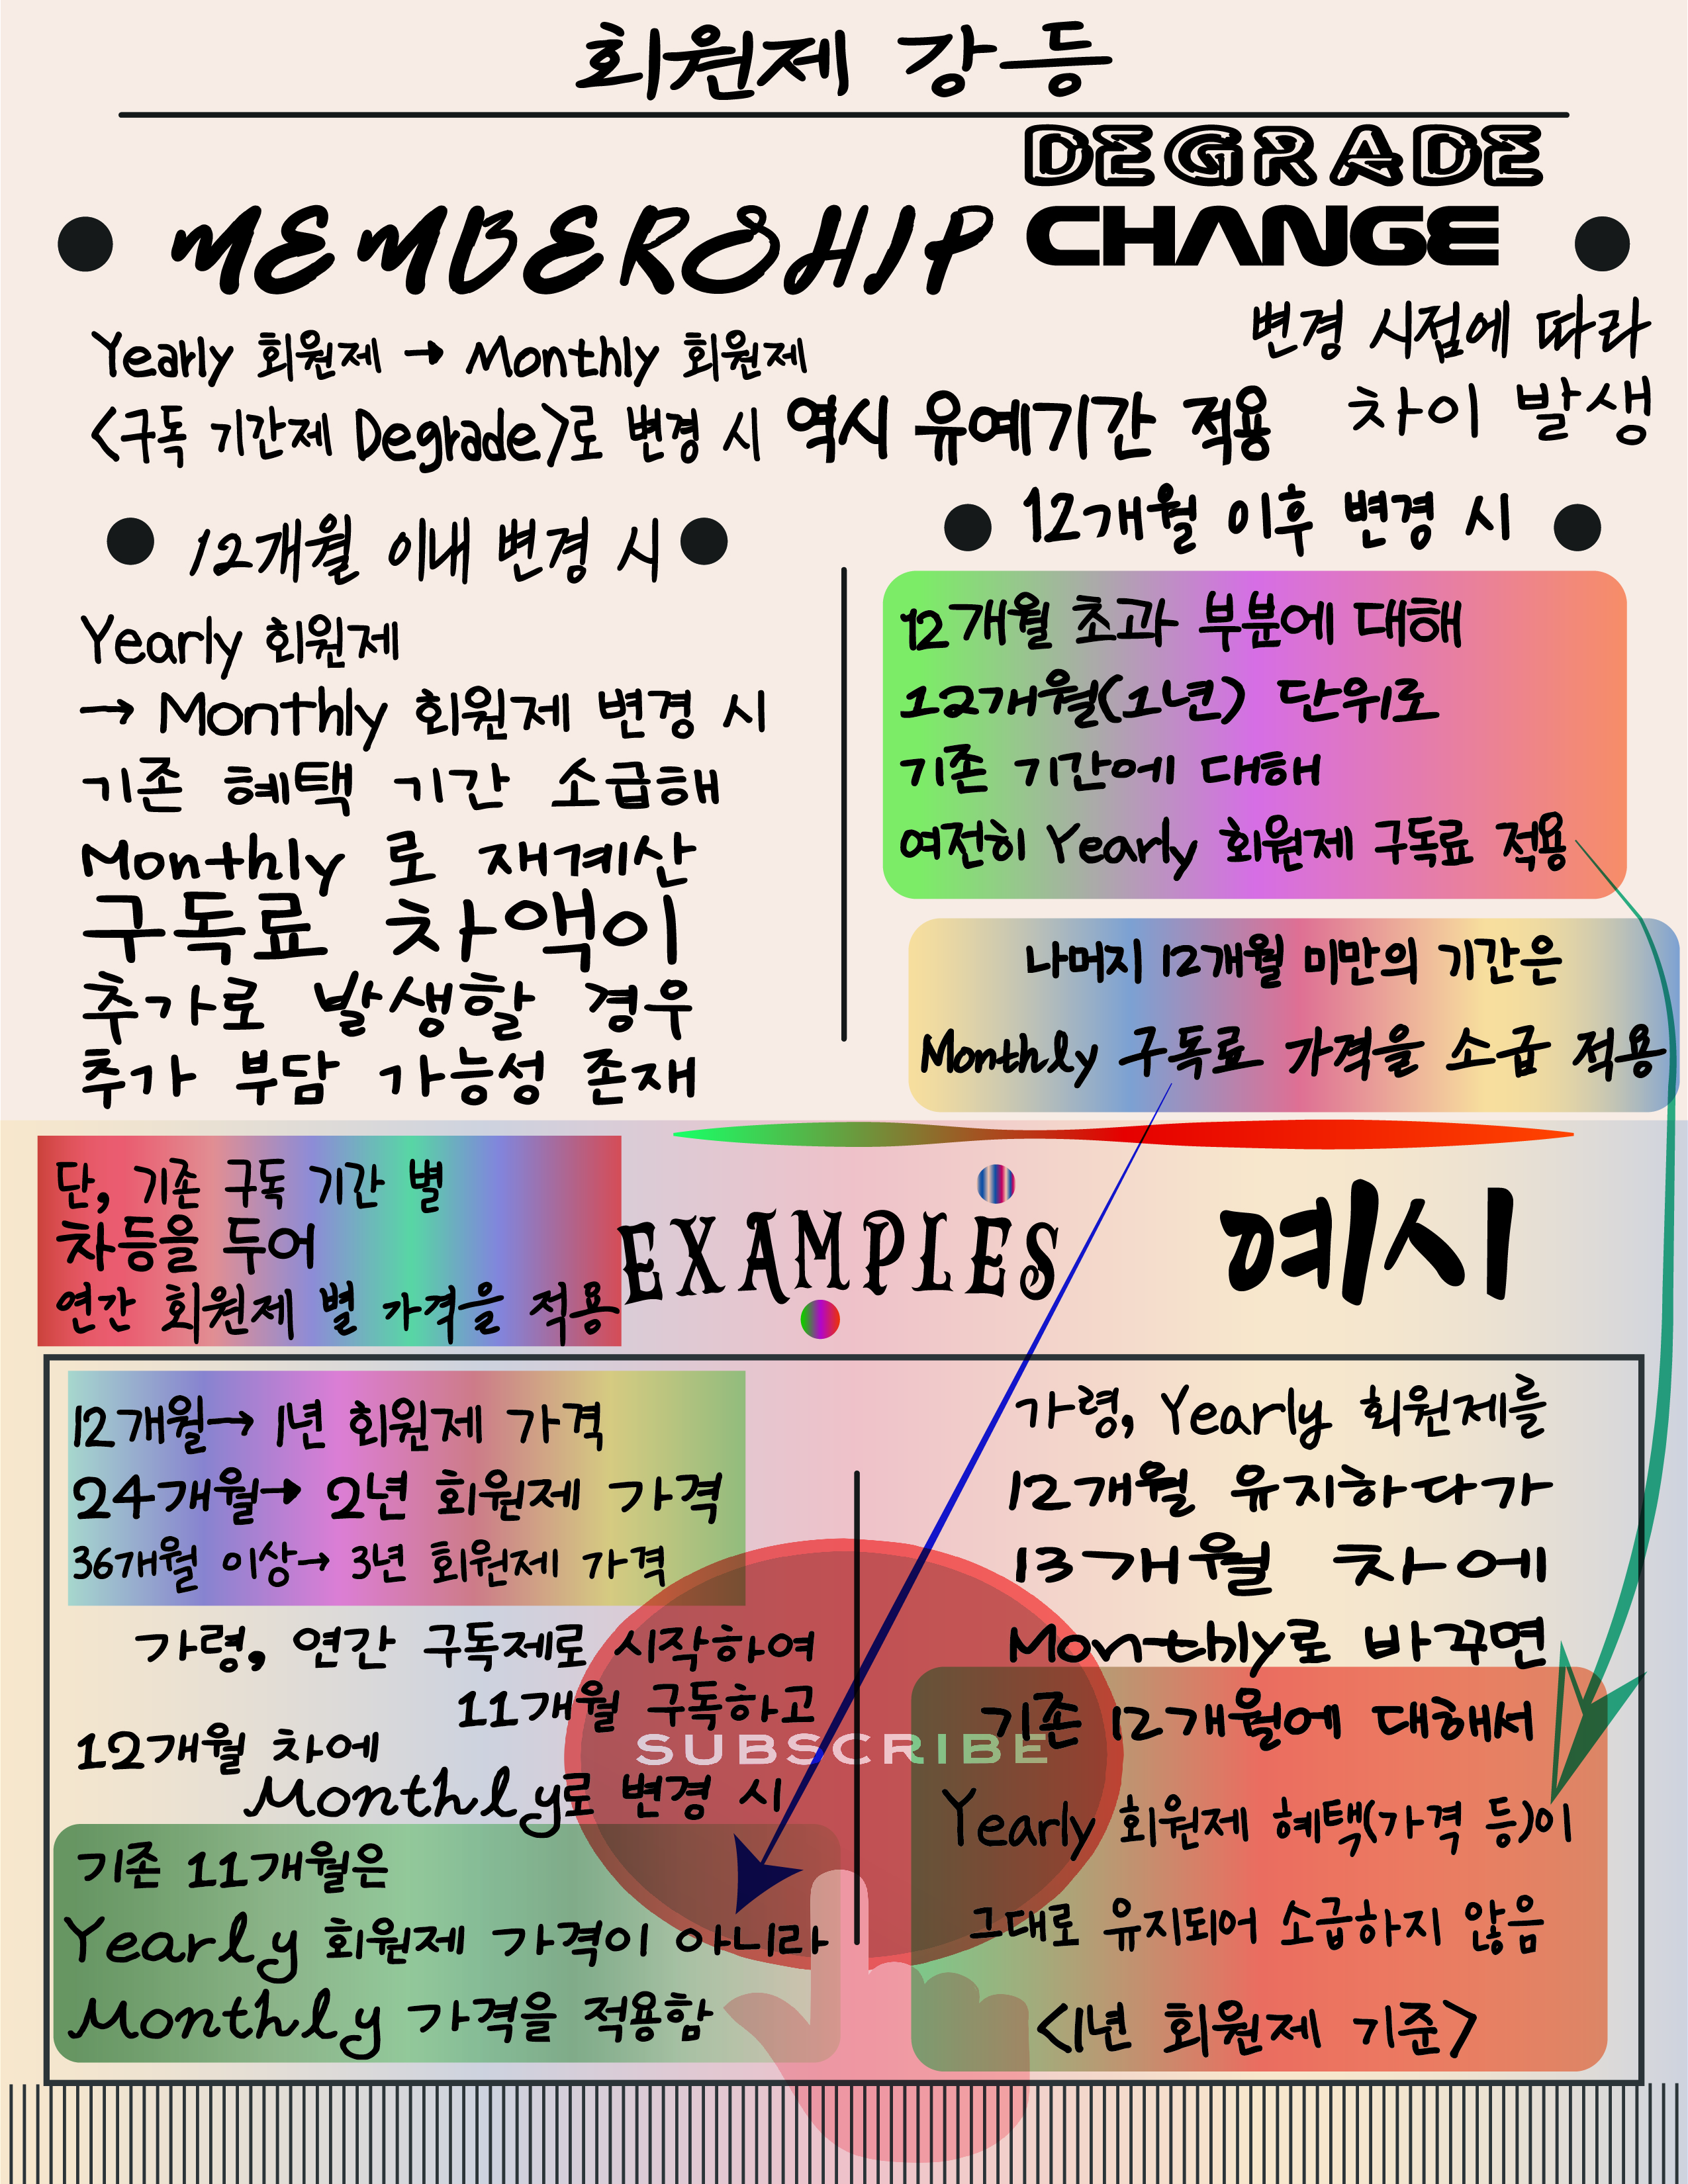 회원제 강등
MEMBERSHIP DEGRADE CHANGE
Yearly 회원제 → Monthly 회원제
<구독 기간제 Degrade>로 변경 시 역시 유예기간 적용
변경 시점에 따라
차이 발생
12개월 이내 변경 시
Yearly 회원제
→ Monthly 회원제 변경 시
기존 혜택 기간 소급해
Monthly 로 재계산
구독료 차액이
추가로 발생할 경우
추가 부담 가능성 존재
12개월 이후 변경 시
12개월 초과 부분에 대해
12개월(1년) 단위로
기존 기간에 대해
여전히 Yearly 회원제 구독료 적용
나머지 12개월 미만의 기간은
Monthly 구독료 가격을 소급 적용
단, 기존 구독 기간 별
차등을 두어
연간 회원제 별 가격을 적용
EXAMPLES 예시
12개월→ 1년 회원제 가격
24개월→ 2년 회원제 가격
36개월 이상→ 3년 회원제 가격
가령, 연간 구독제로 시작하여
11개월 구독하고
12개월 차에
Monthly로 변경 시
기존 11개월은
Yearly 회원제 가격이 아니라
Monthly 가격을 적용함
가령, Yearly 회원제를
12개월 유지하다가
13개월 차에
Monthly로 바꾸면
기존 12개월에 대해서
Yearly 회원제 혜택(가격 등)이
그대로 유지되어 소급하지 않음
<1년 회원제 기준>
SUBSCRIBE